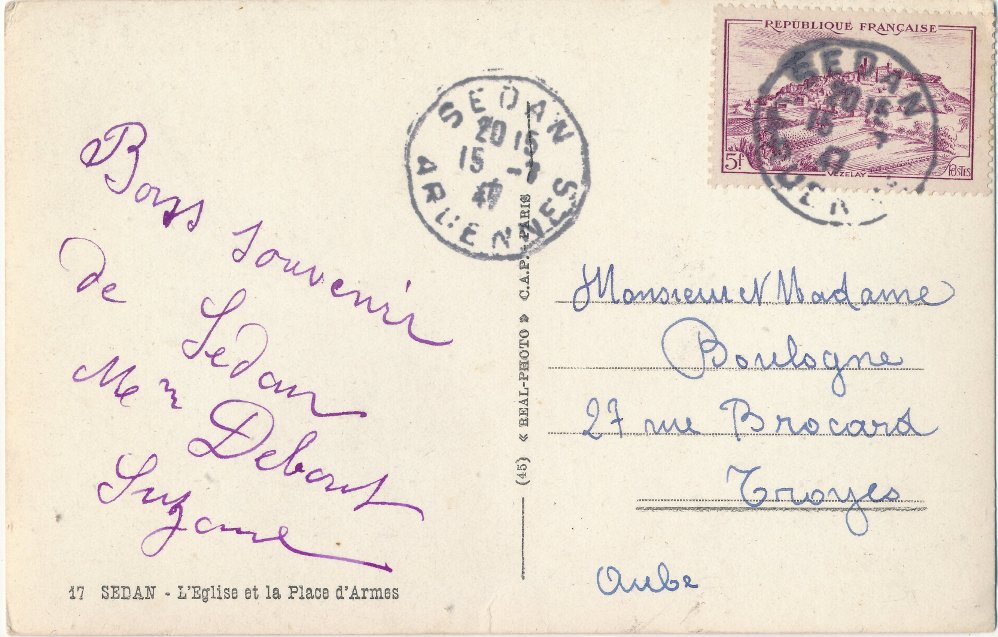 Bons souvenir
de Sedan
Me m Debout
Suzane
17 SEDAN - L'Eglise et la Place d'Armes
SEDAN
20 15
15 -
47
ARDENNES
(45) « REAL-PHOTO » C.A.P. - PARIS
REPUBLIQUE FRANÇAISE
5f
VEZELAY
POSTES
SEDAN
20 15
15
47
Monsieur et Madame
Boulogne
27 rue Brocard
Troyes
Aube